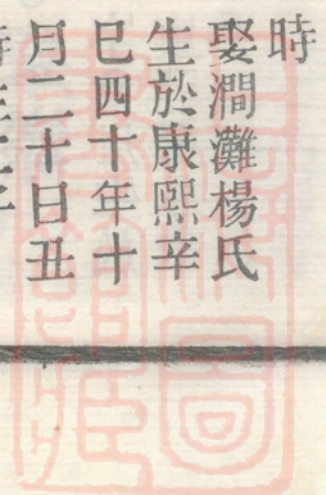 時
娶澗灘楊氏
生於康熙辛
巳四十年十
月二十日丑